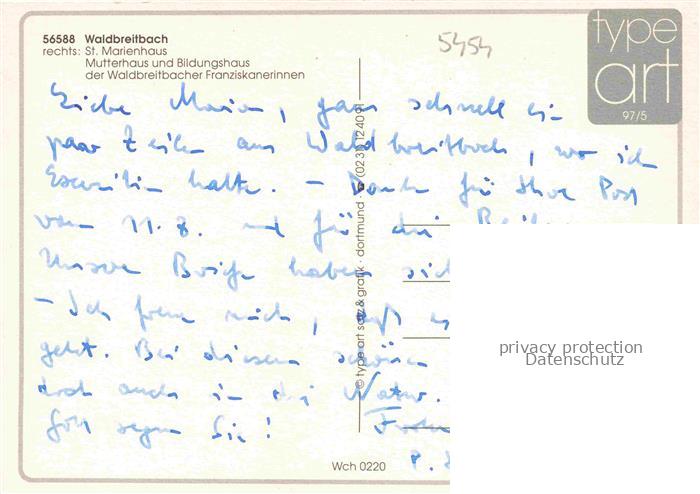 56588 Waldbreitbach
rechts: St. Marienhaus
Mutterhaus und Bildungshaus
der Waldbreitbacher Franziskanerinnen
5454
type
art
97/5
Liebe Maria, ganz schnell ein
paar Zeilen aus Waldbreitbach, wo ich
Exerzitien halte. – Dank für Ihre Post
vom 11.8. und für die
Unsere Briefe haben sich
– Ich freue mich, daß es
geht. Bei diesem schönen
doch auch in der Natur.
Gott segne Sie! Frohe
P.
© type art satz & grafik · dortmund · ☎ (0231) 124091
Wch 0220
privacy protection
Datenschutz